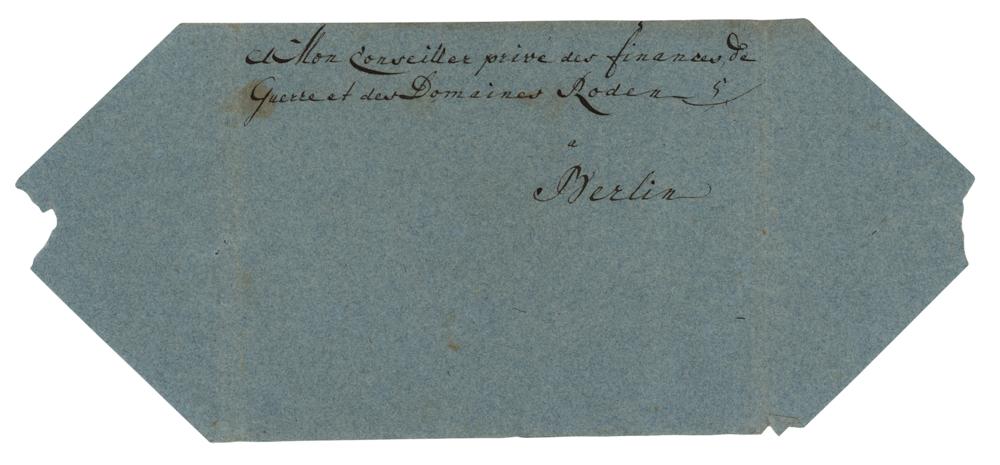 A Mon Conseiller privé des finances, de
Guerre et des Domaines Roden
a
Berlin